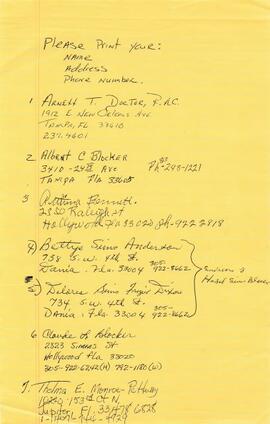 Please Print Your:
Name
Address
Phone Number.
1 Arnett T. Doctor, P.A.C.
1912 E New Orleans Ave
Tampa, FL 33610
237-4601
2 Albert C Blocker
3410 - 24th Ave
Tampa Fla 33605
Ph 293-1221
3
Bennett
2330 Raleigh St
Hollywood Fla 33020 ph-922-2818
4) Bettye Sims Anderson
738 S.W. 4th St.
Dania, Fla. 33004 305-922-8662
5) Delores Sims Dixon
734 S.W. 4th St.
Dania, Fla. 33004 305-922-8662
6 Claude L Blocker
2323 Simms St
Hollywood Fla 33020
305-922-6242(H) 792-1180(W)
7. Thelma E. Monroe-
153rd Ct N.
Jupiter, Fl. 33478